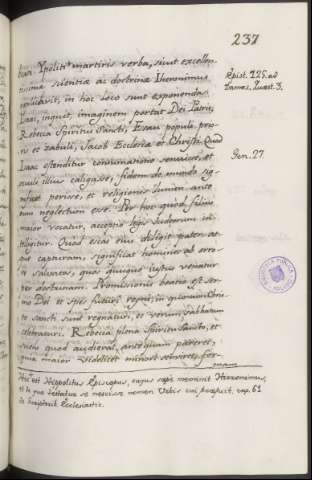 237
tura. Ypoliti martiris verba, sicut excellen-
tissima scientiæ ac doctrinæ Iheronimus
in hoc loco sunt exponenda.
Isaac, inquit, imaginem portat Dei Patris;
Rebecca Spiritus Sancti; Esau populi prio-
ris et zabuli; Jacob Ecclesia et Christi. Quod
Isaac ostenditur consummatio senuisse, et
oculi illius caligasse, fidem de mundo sig-
nificat periisse, et religionis lumen ante
eum neglectum esse. Per hoc quod filius
maior vocatur, acceptio legis Iudeorum in-
telligitur. Quod escas eius diligit pater at-
que capturam, significat homines ab erro-
re salvatos, quos quisque iustus venatur
per doctrinam. Promissionis beatio est ser-
mo Dei et spes futuri regni, in quo cum Chris-
to sancti sunt regnaturi, et verum sabbatum
celebraturi. Rebecca plena Spiritu Sancto, et
sciens quod audierat, antequam pareret,
quia maior videlicet minori serviret, for-
mam
Epist. 125. ad
Damas. Quæst. 3.
Gen. 27.
Hic est Hippolitus Episcopus, cujus sæpe meminit Hieronimus,
et de quo testatur se nescisse nomen Urbis cui præfuit, cap. 61
de Scriptorib. Ecclesiastic.